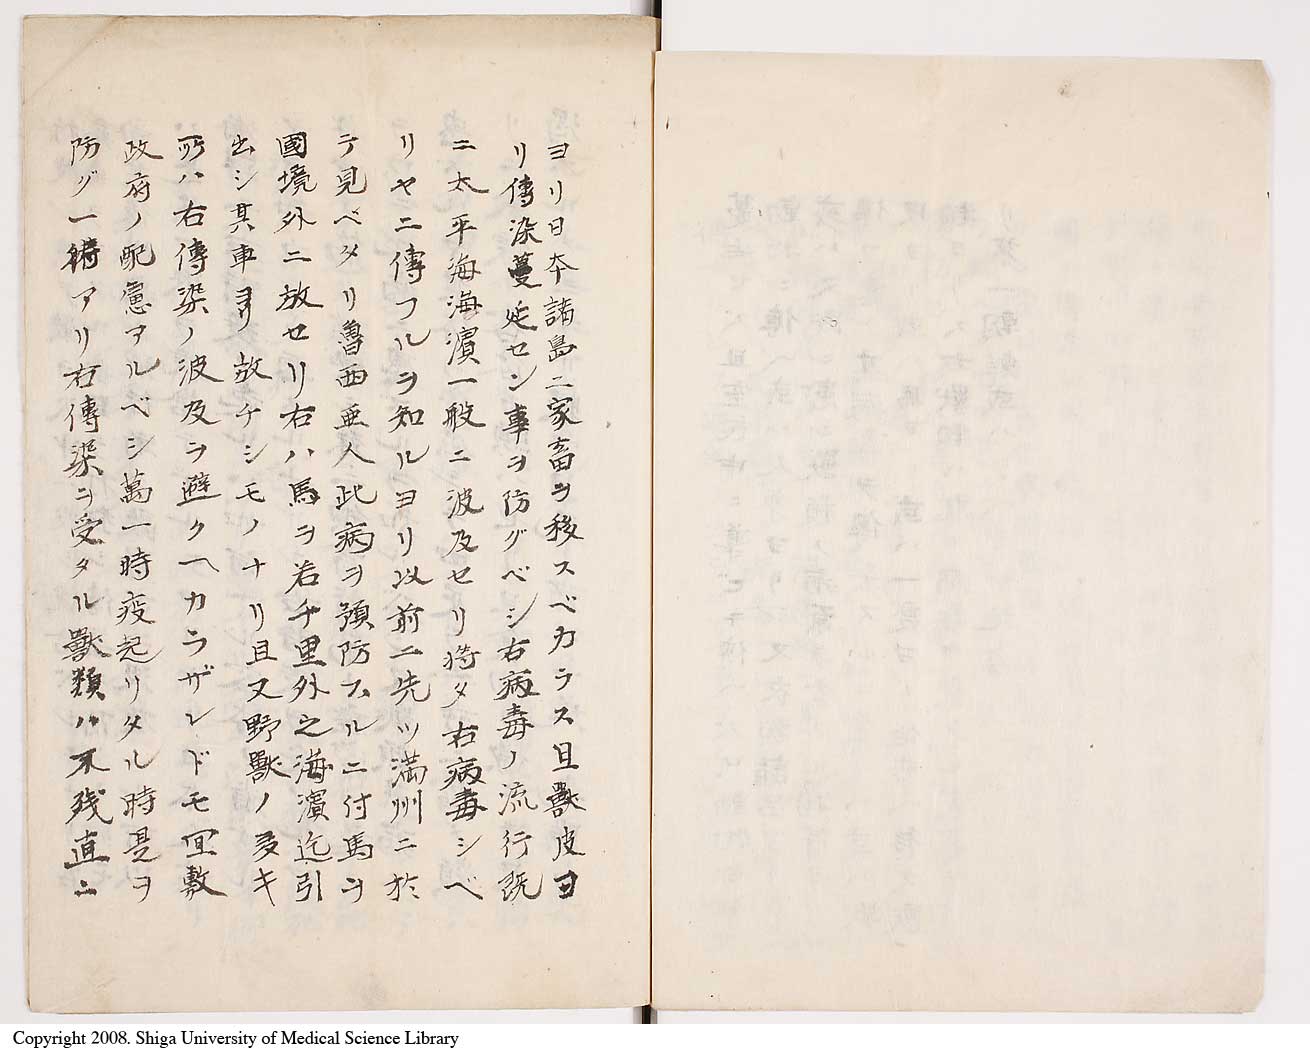 ヨリ日本諸島ニ家畜ヲ移スベカラス且獸皮ヨ
リ傳染蔓延セン事ヲ防グベシ右病毒ノ流行既
ニ太平海海濱一般ニ波及セリ将タ右病毒シベ
リヤニ傳フルヲ知ルヨリ以前ニ先ツ満州ニ於
テ見ベタリ魯西亜人此病ヲ預防スルニ付馬ヲ
國境外ニ放セリ右ハ馬ヲ若干里外之海濱迄引
出シ其車ヨリ放チシモノナリ且又野獸ノ多キ
所ハ右傳染ノ波及ヲ避クヘカラザレドモ宜敷
政府ノ配慮アルベシ萬一時疫起リタル時是ヲ
防グ一術アリ右傳染ヲ受タル獸類ハ不残直ニ
Copyright 2008. Shiga University of Medical Science Library